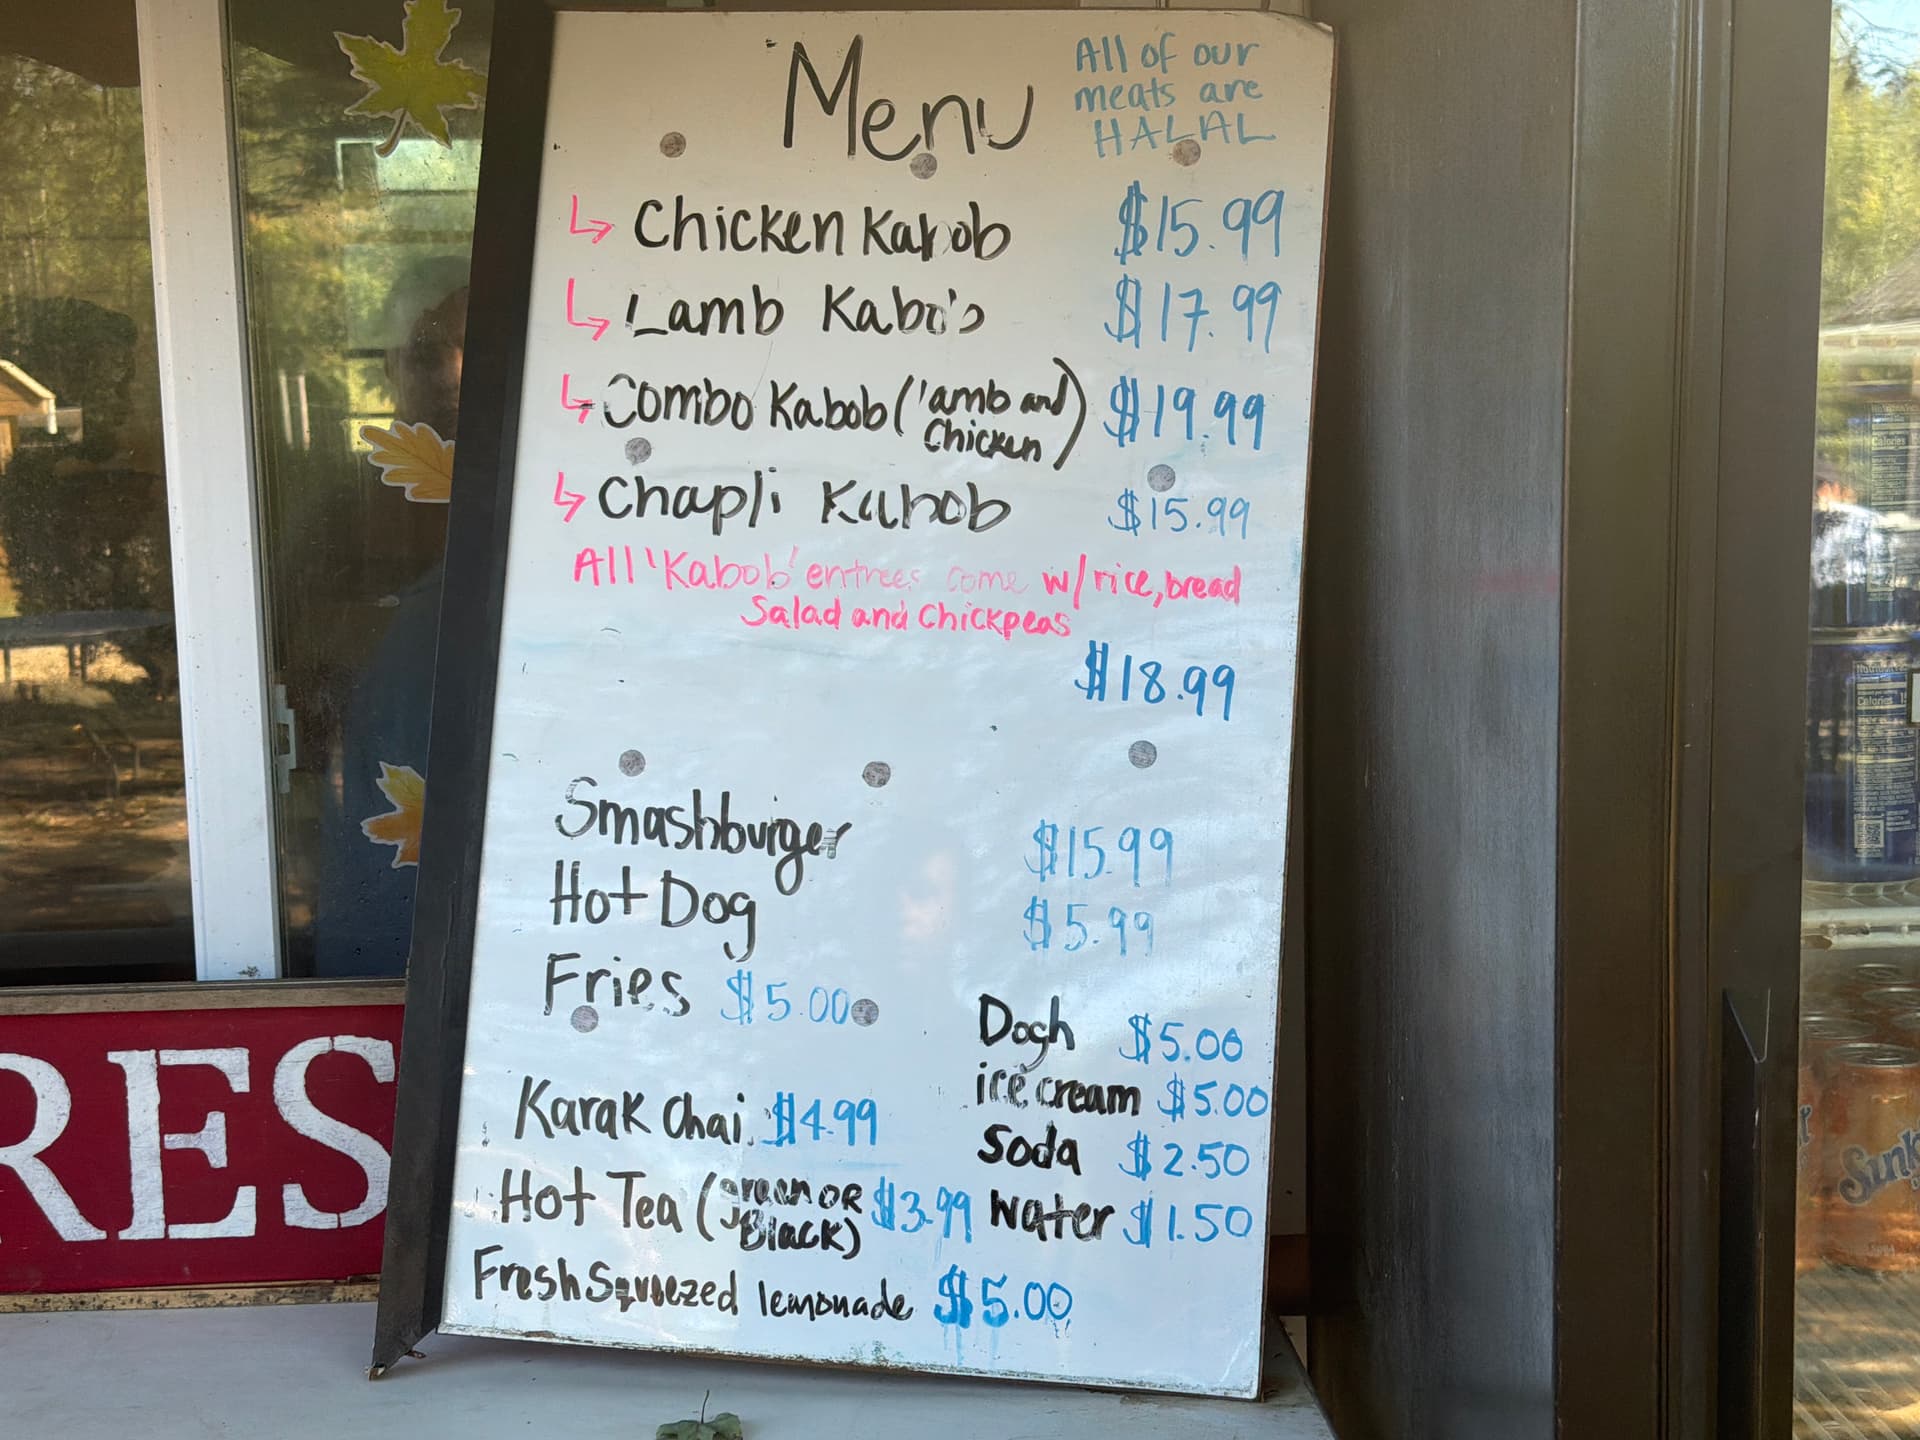 Menu
All of our
meats are
HALAL
↳ Chicken Kabob $15.99
↳ Lamb Kabob $17.99
↳ Combo Kabob (lamb and Chicken) $19.99
↳ Chapli Kabob $15.99
All 'Kabob' entrees come w/ rice, bread
Salad and Chickpeas
$18.99
Smashburger $15.99
Hot Dog $5.99
Fries $5.00
Dogh $5.00
ice cream $5.00
Karak Chai $4.99
Soda $2.50
Hot Tea (green OR Black) $3.99
Water $1.50
Fresh Squeezed lemonade $5.00
RES
Calories
Calories